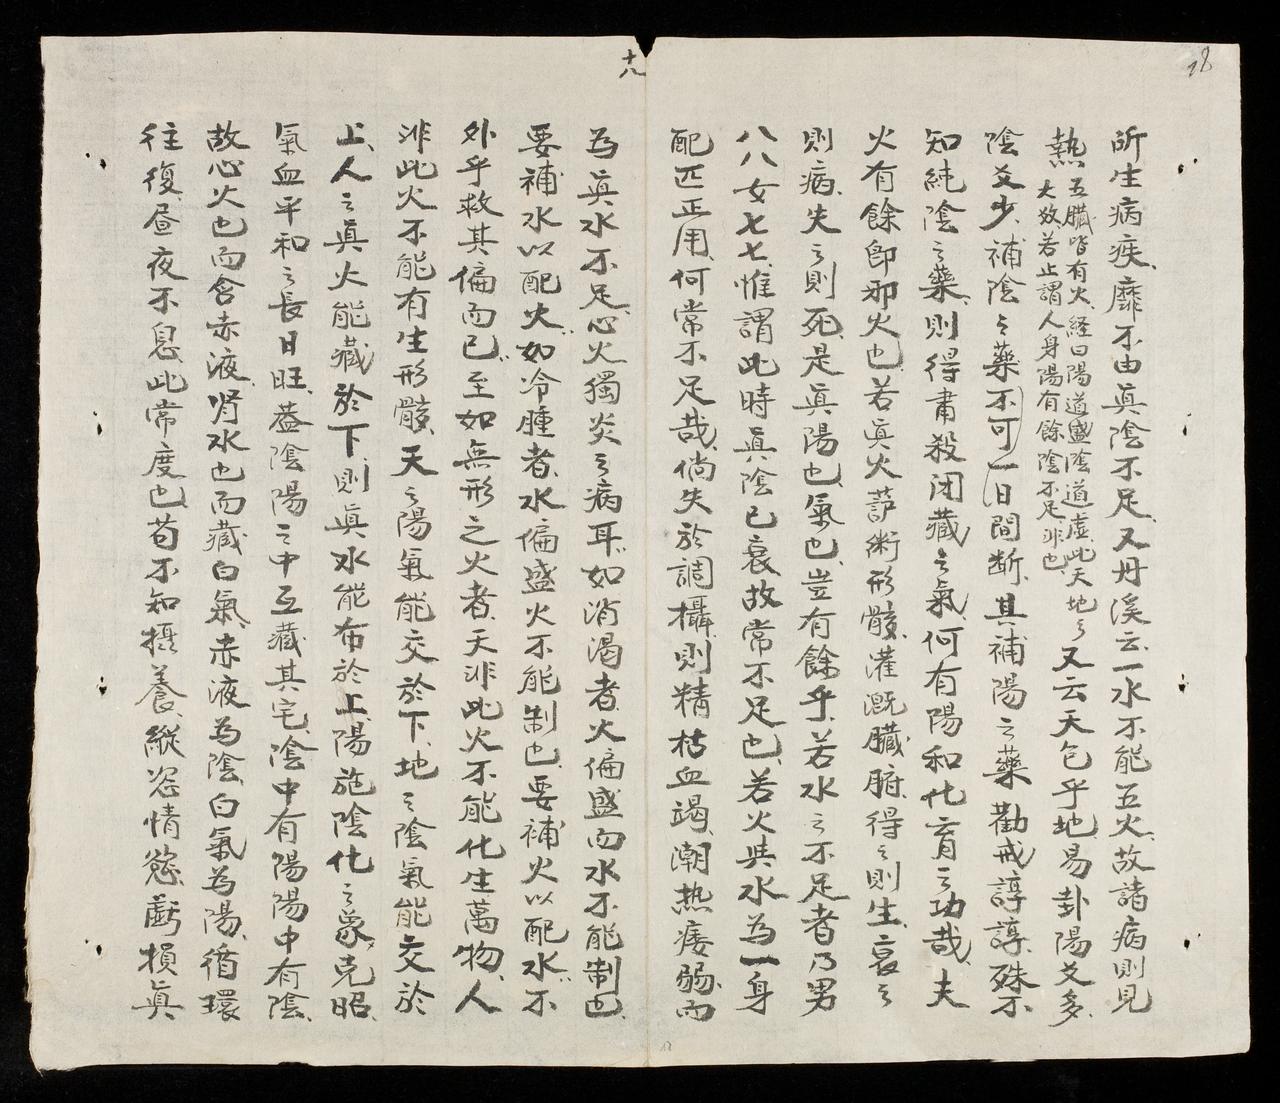 18
十八
所生病疾、靡不由眞陰不足、又丹溪云、一水不能五火、故諸病則見
熱
五臓皆有火、経曰陽道盛陰道虚、此天地之
大数若止謂人身陽有餘陰不足、非也、
又云天包乎地、易卦陽爻多、
陰爻少、補陰之藥不可一日間断、其補陽之藥勸戒諄諄、殊不
知純陰之藥、則得肅殺閉藏之氣、何有陽和化育之功哉、夫
火有餘卽邪火也、若眞火莭術形骸、灌漑臓腑、得之則生、衰之
則病、失之則死、是眞陽也、氣也、豈有餘乎、若水之不足者乃男
八八女七七、惟謂此時眞陰已衰故常不足也、若火與水為一身
配匹正用、何常不足哉、倘失於調攝、則精枯血竭、潮热痿弱、而
為眞水不足、心火獨炎之病耳、如消渇者、火偏盛而水不能制也、
要補水以配火、如冷腫者、水偏盛火不能制也、要補火以配水、不
外乎救其偏而已、至如無形之火者、天非此火不能化生萬物、人
非此火不能有生形骸、天之陽氣能交於下、地之陰氣能交於
上、人之眞火能藏於下、則眞水能布於上、陽施陰化之象、克昭、
氣血平和之長日旺、葢陰陽之中互藏其宅、陰中有陽陽中有陰、
故心火也而含赤液、肾水也而藏白氣、赤液為陰、白氣為陽、循環
往復、昼夜不息、此常度也、苟不知摂養、縱恣情慾、虧損眞